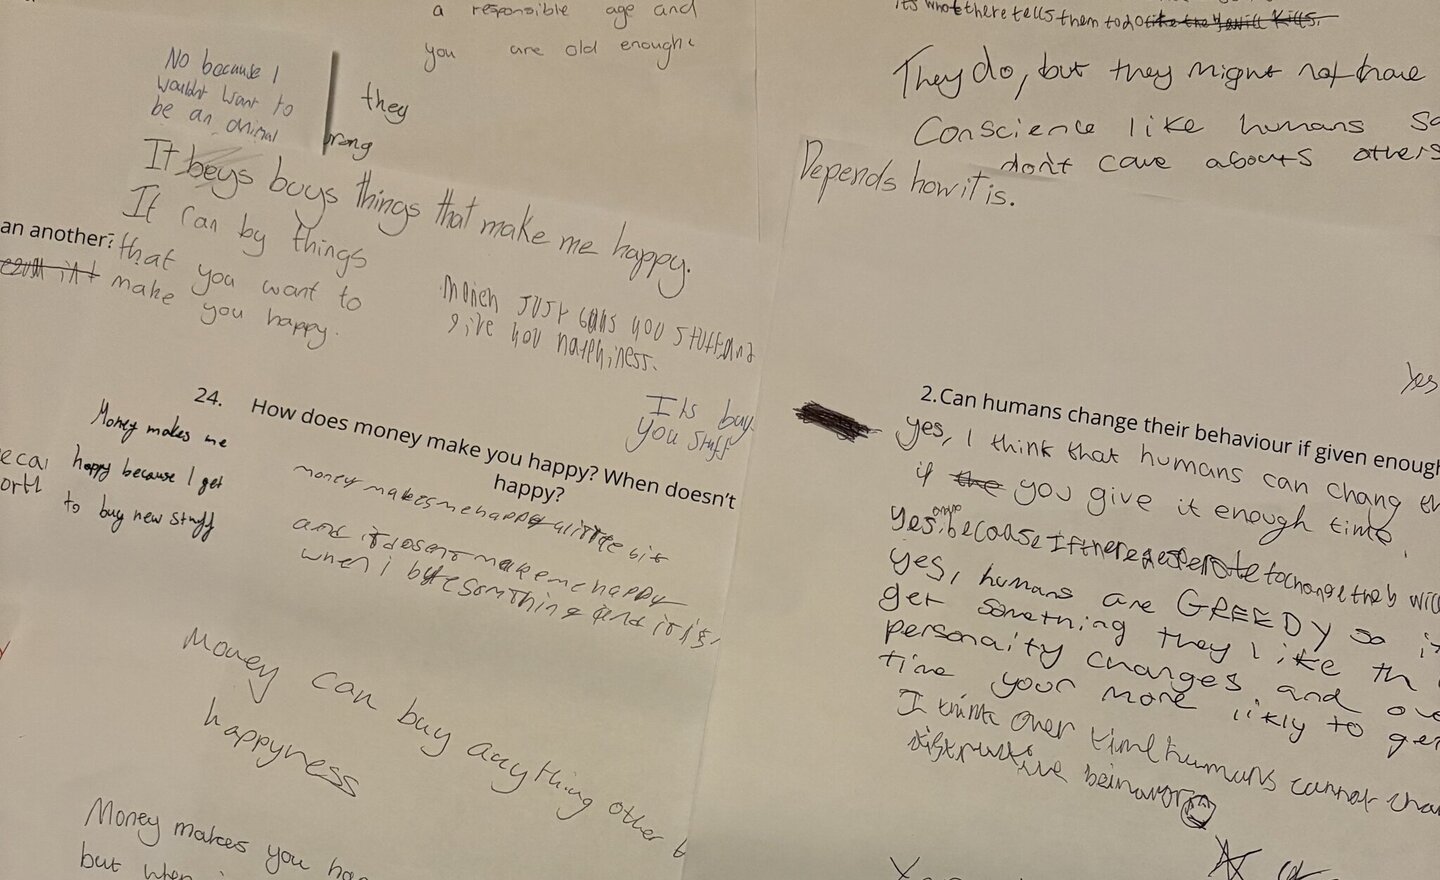 a responsible age and
you are old enough
No because I
wouldnt want to
be an animal
they
wrong
It beys buys things that make me happy.
It can by things
that you want to
make you happy.
an another?
money just gans you stuff and
give you happhiness.
Its buy
you stuff
24. How does money make you happy? When doesn't
happy?
Money makes me
happy because I get
to buy new stuff
ecau
orth
money makes me happy a little bit
and it doesnt make me happy
when i bye something and it is
Money can buy anything other
happyness
Money makes you hap
but when
its whot there tells them to do like they will kills.
They do, but they might not have
Conscience like humans so
don't care abouts others
Depends how it is.
Yes
2. Can humans change their behaviour if given enough
yes, I think that humans can chang th
if the you give it enough time.
yes, because if there desperate to change they will
yes, humans are GREEDY so if
get something they like th
personaity changes and ove
time your more likly to get
I think over time humans cannot chan
distructive beihavior